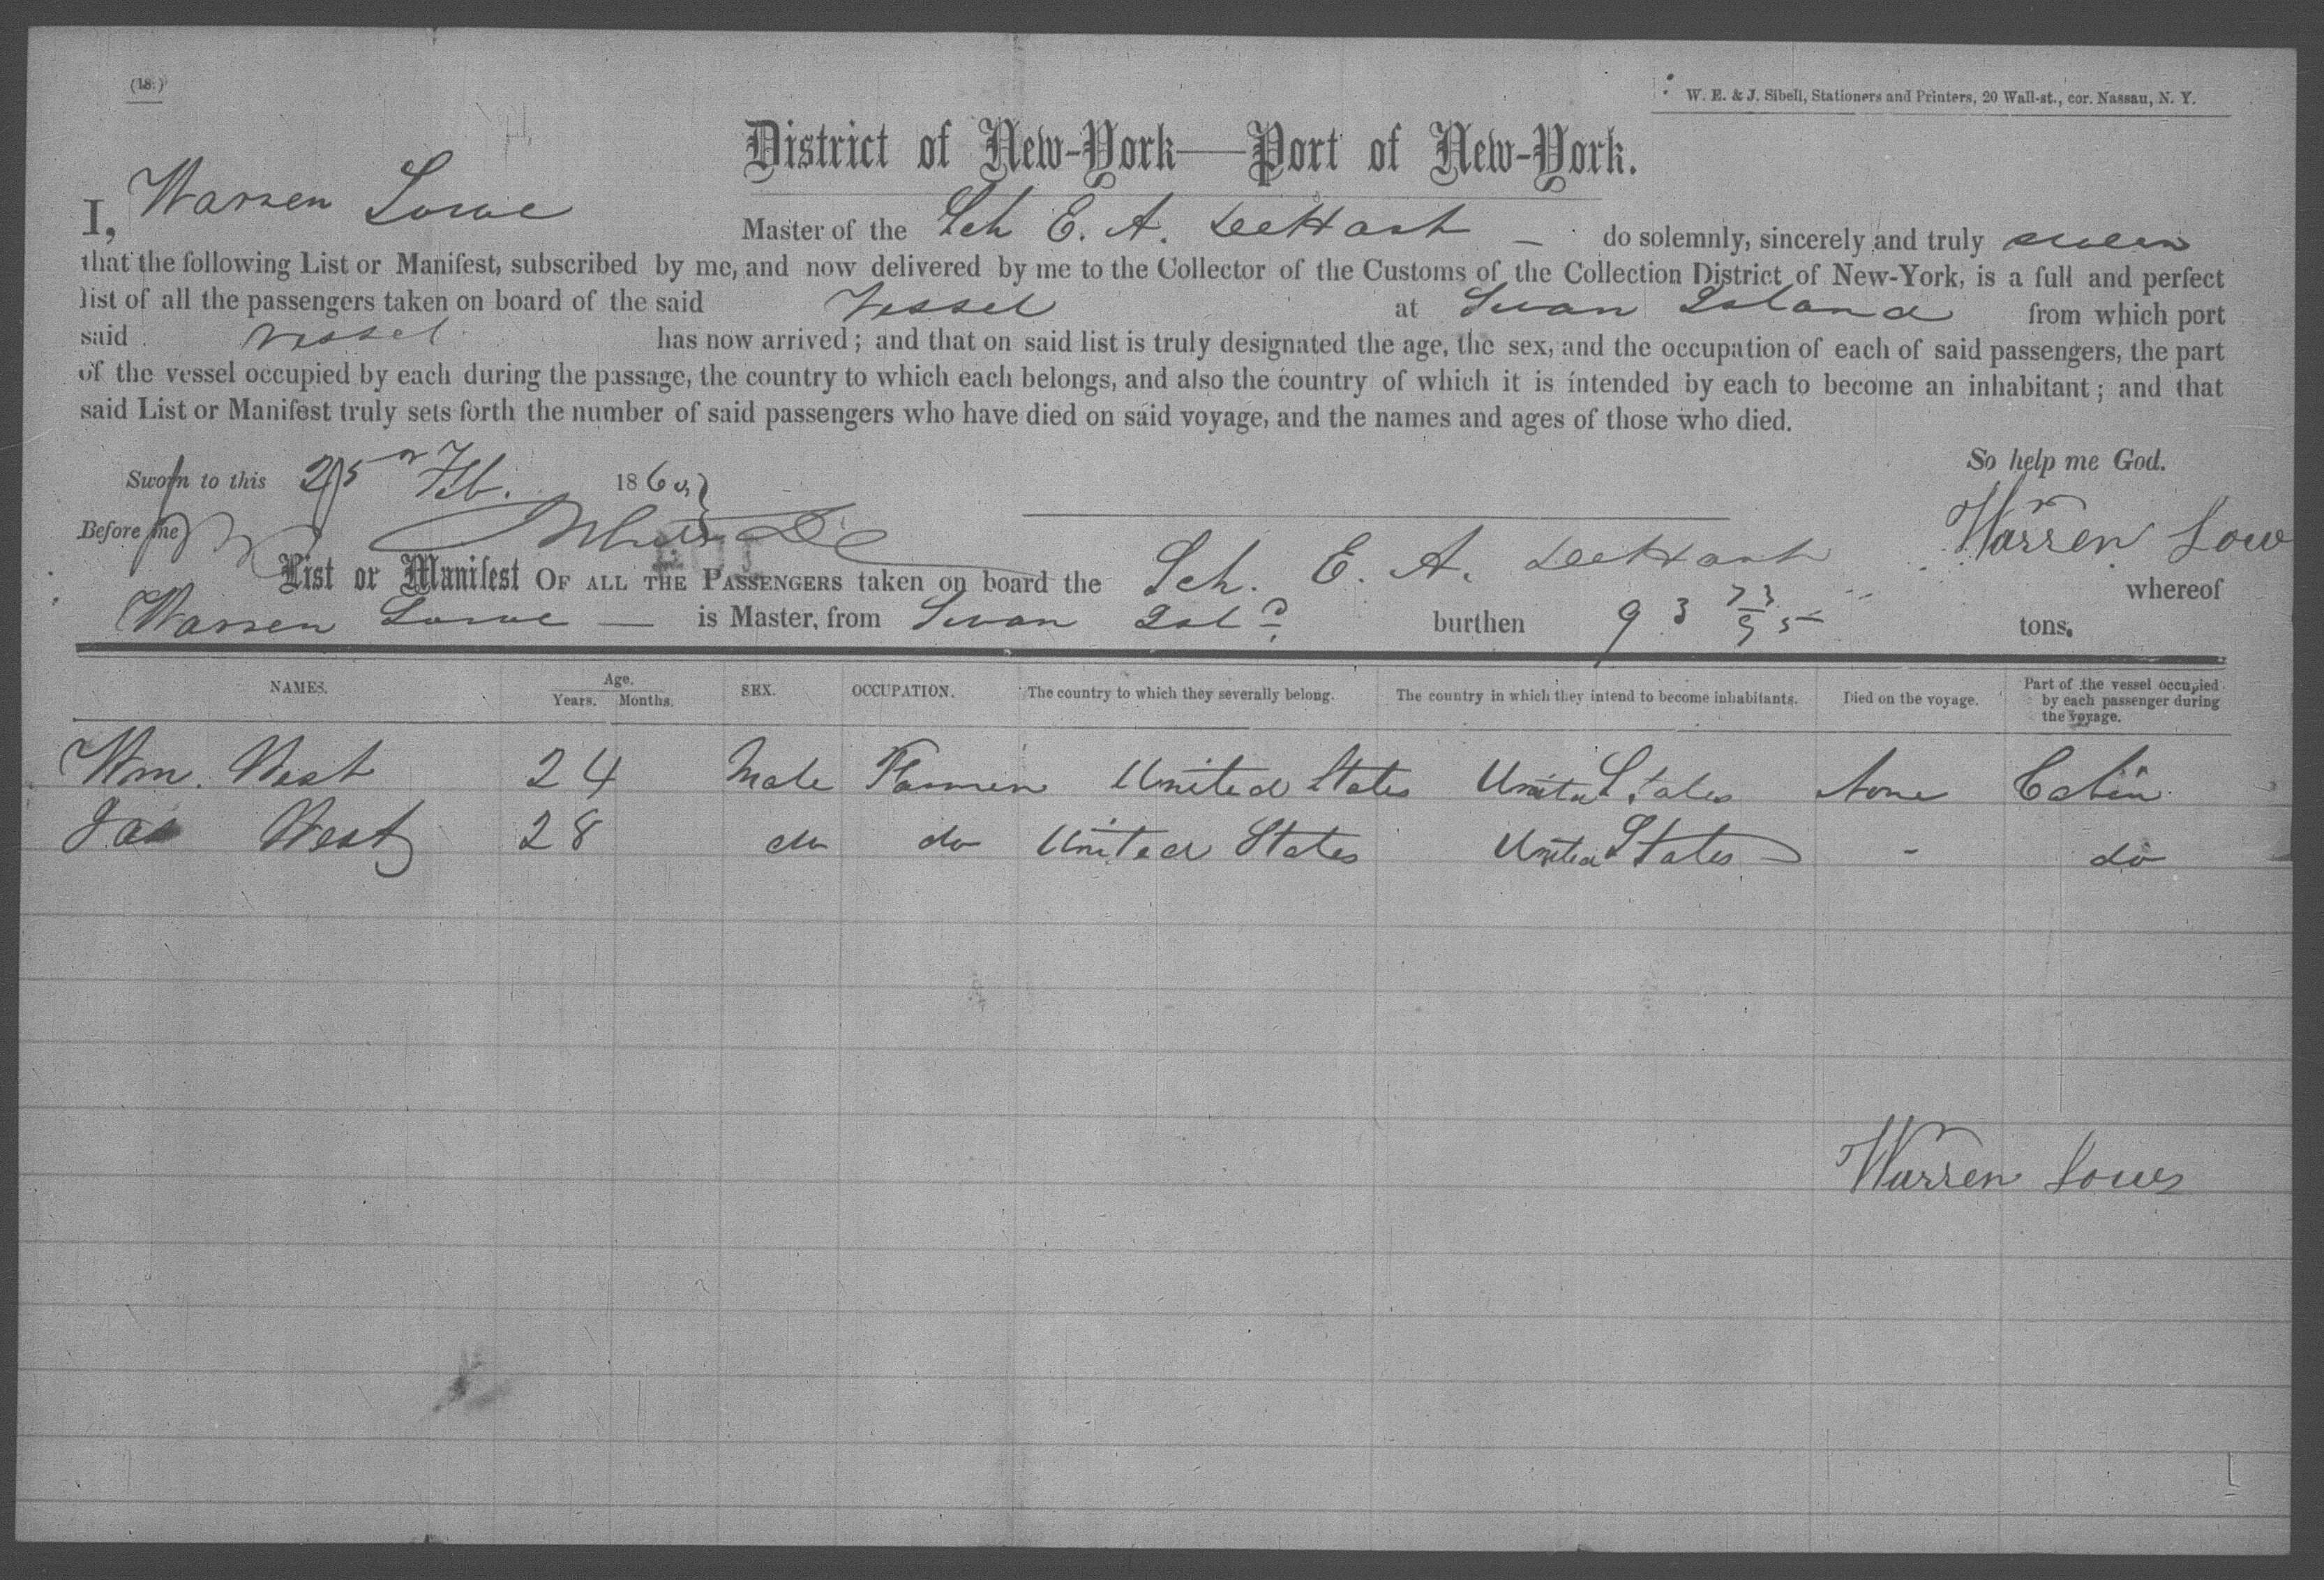 (18.)
W. E. & J. Sibell, Stationers and Printers, 20 Wall-st., cor. Nassau, N. Y.
District of New-York—Port of New-York.
I, Warren Lowe Master of the Sch E. A. DeHart — do solemnly, sincerely and truly swear
that the following List or Manifest, subscribed by me, and now delivered by me to the Collector of the Customs of the Collection District of New-York, is a full and perfect
list of all the passengers taken on board of the said Vessel at Swan Island from which port
said vessel has now arrived; and that on said list is truly designated the age, the sex, and the occupation of each of said passengers, the part
of the vessel occupied by each during the passage, the country to which each belongs, and also the country of which it is intended by each to become an inhabitant; and that
said List or Manifest truly sets forth the number of said passengers who have died on said voyage, and the names and ages of those who died.
So help me God.
Sworn to this 25 Feb. 186
Before me
Warren Low
List or Manifest OF ALL THE PASSENGERS taken on board the Sch. E. A. DeHart whereof
Warren Lowe — is Master, from Swan Isld burthen 93 73/95 tons.
NAMES. Age. Years. Months. SEX. OCCUPATION. The country to which they severally belong. The country in which they intend to become inhabitants. Died on the voyage. Part of the vessel occupied by each passenger during the voyage.
Wm. West 24 Male Farmer United States United States None Cabin
Jas West 28 do do United States United States - do
Warren Lowe